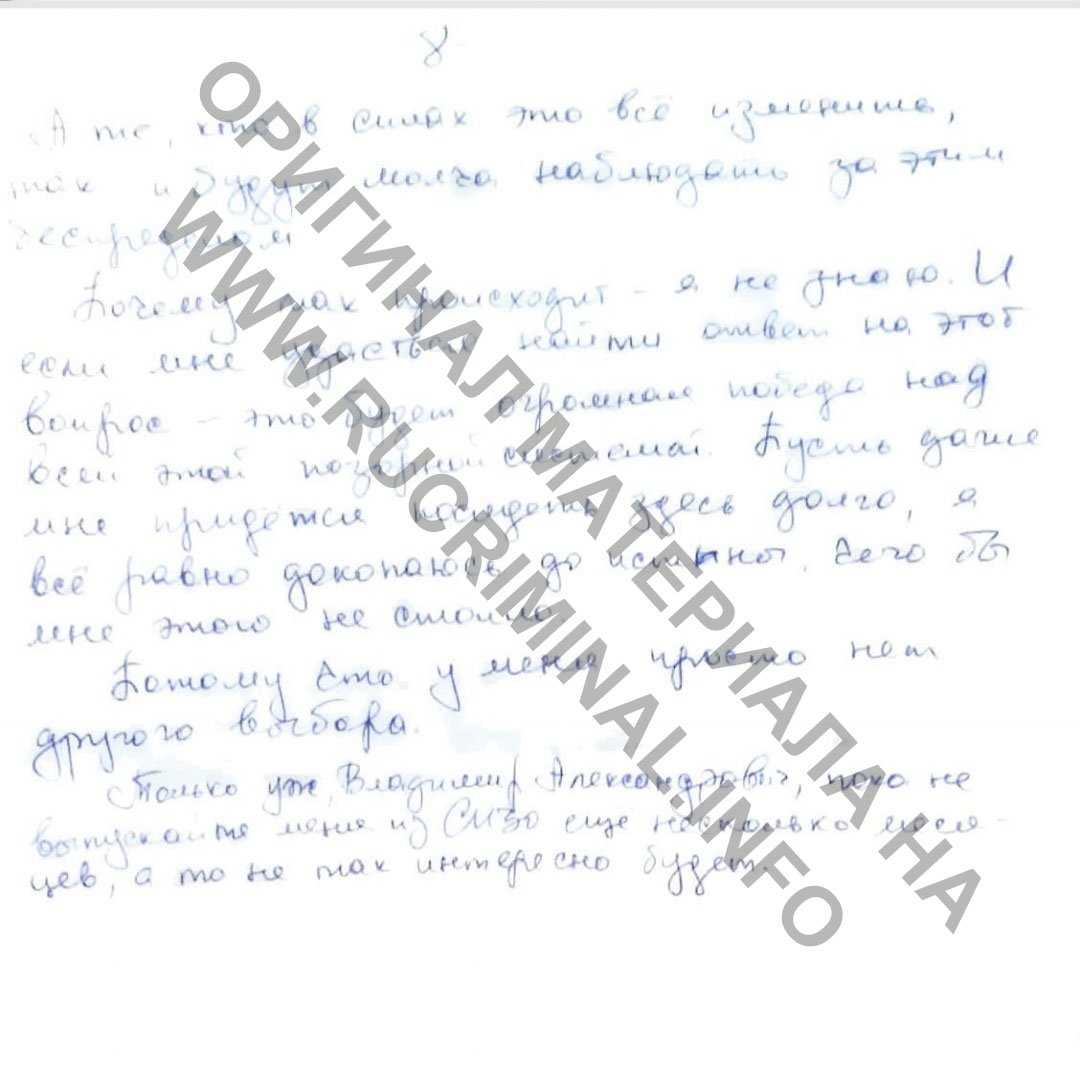 8
А те, кто в силах это всё изменить,
так и будут молча наблюдать за этим
беспределом
Почему так происходит - я не знаю. И
если мне удасться найти ответ на этот
вопрос - это будет огромная победа над
всей этой позорной системой. Пусть даже
мне придётся посидеть здесь долго, я
всё равно докопаюсь до истины, чего бы
мне этого не стоило.
Потому что у меня просто нет
другого выбора.
Только уж, Владимир Александрович, пока не
выпускайте меня из СИЗО ещё несколько меся-
цев, а то не так интересно будет.
ОРИГИНАЛ МАТЕРИАЛА НА
WWW.RUCRIMINAL.INFO